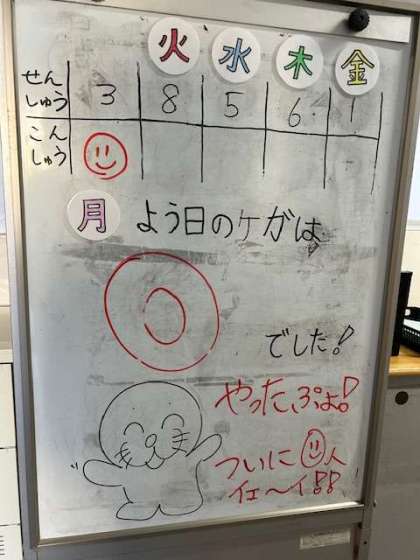 火 水 木 金
せんしゅう 3 8 5 6 1
こんしゅう
月 よう日のケガは
0
でした!
やったぷよ!
ついに 人
イェ〜イ!!